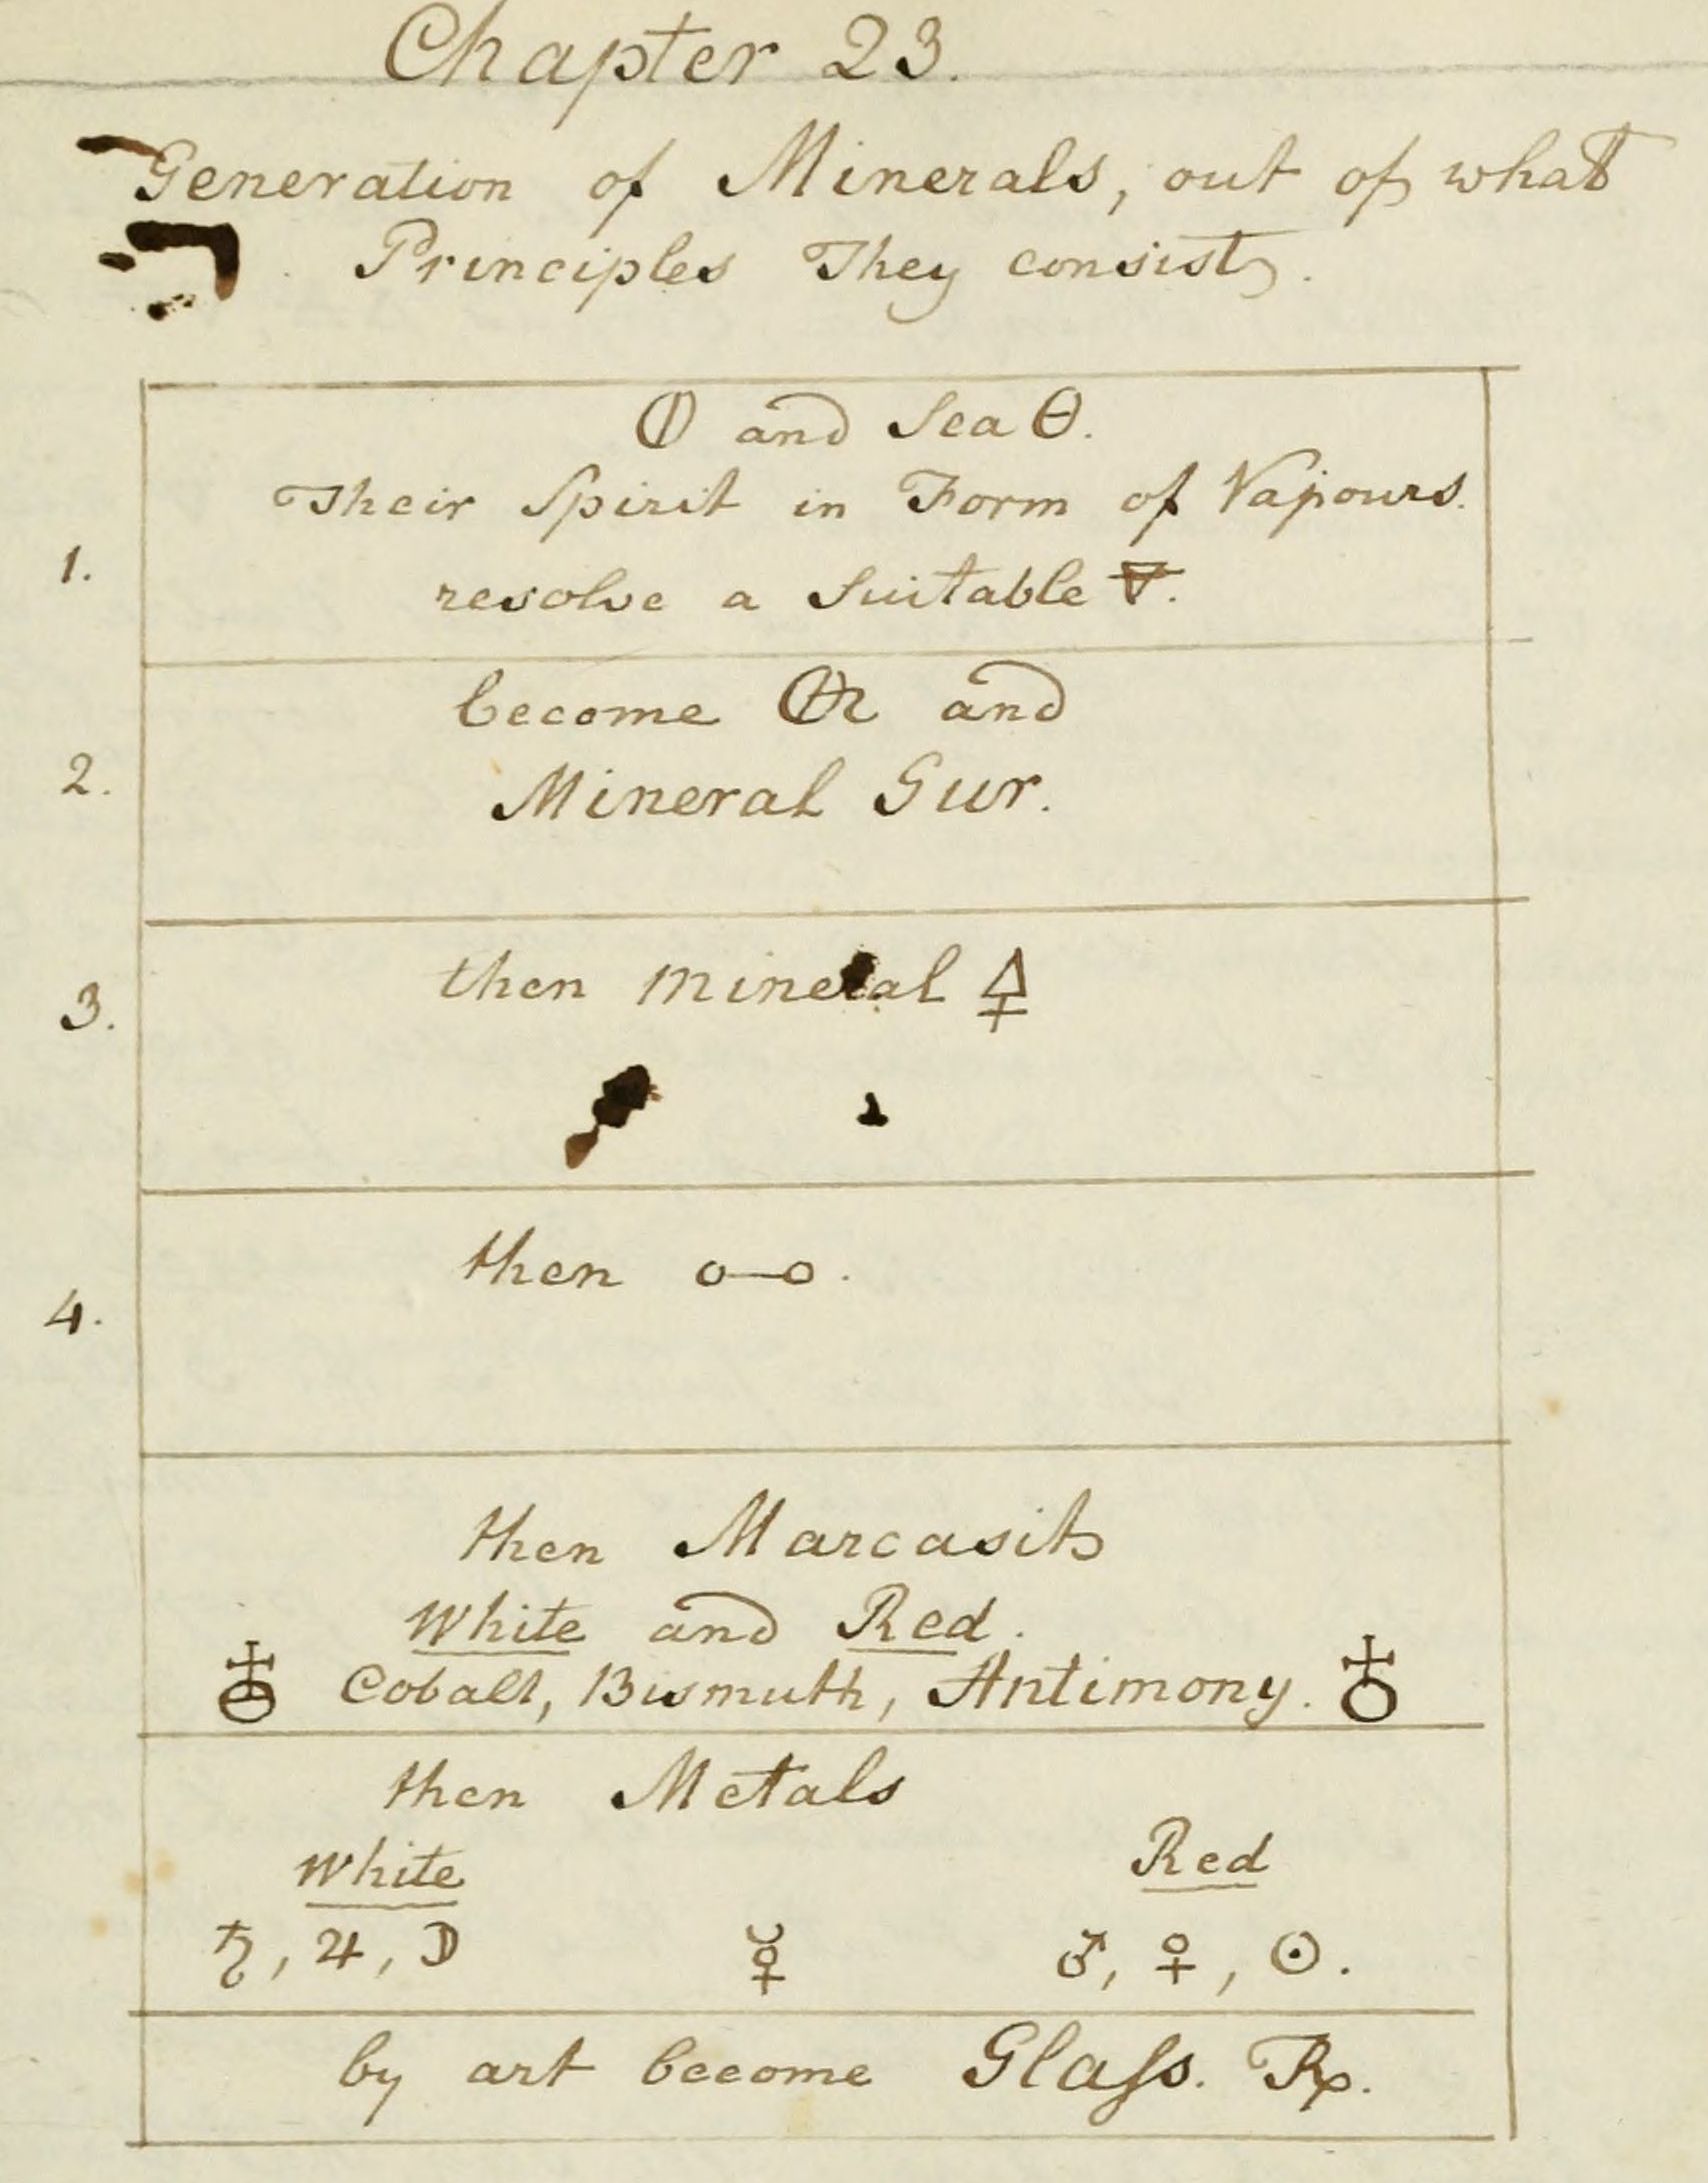 Chapter 23.
Generation of Minerals, out of what
Principles They consist.
🜕 and Sea 🜔.
Their Spirit in Form of Vapours.
1.
resolve a Suitable 🜃.
become 🜖 and
2.
Mineral Gur.
then mineral 🜍
3.
then o—o.
4.
then Marcasits
White and Red.
♁ Cobalt, Bismuth, Antimony. ♁
then Metals
White Red
♄, ♃, ☽ ☿ ♂, ♀, ☉.
by art become Glaſs. Rp.